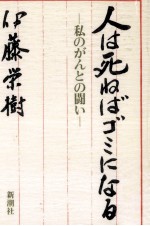 人は死ねばゴミになる
―私のがんとの闘い―
伊藤栄樹
新潮社